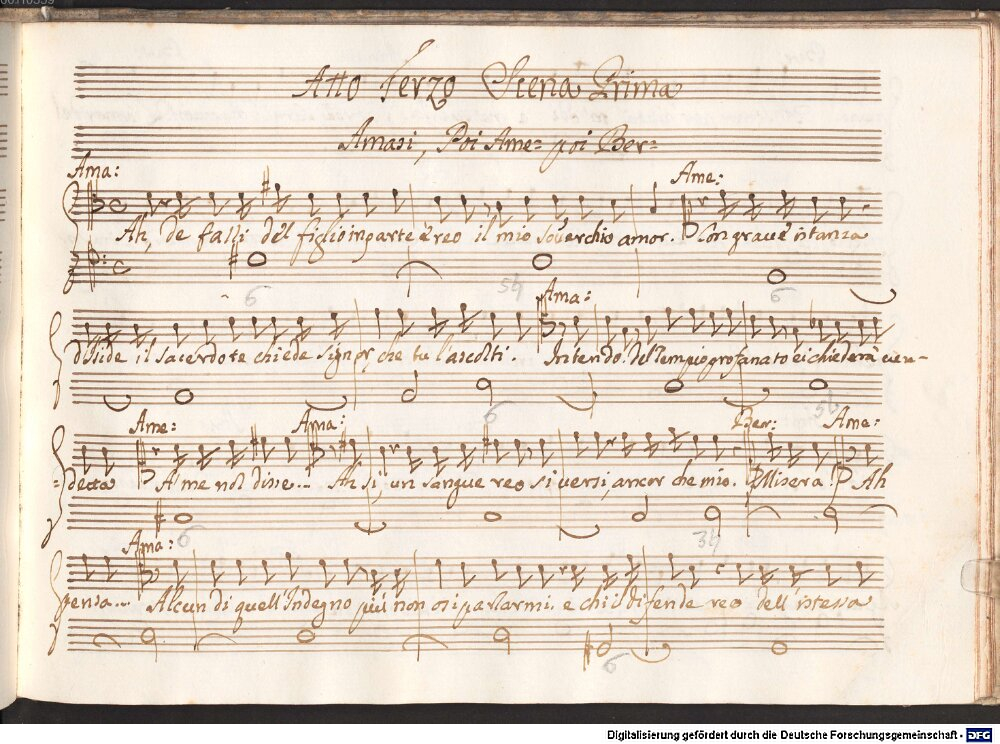 Atto Terzo Scena Prima
Amasi, Poi Ame= poi Ber=
Ama: Ame:
Ah, de falli del figlio in parte è reo il mio soverchio amor. Con grave istanza
6 5♮ Ama: 6
d'Iside il sacerdote chiede signor, che tu l'ascolti. Intendo: del Tempio profanato ei chiederà ven=
Ame: Ama: 6 Ber: 5♮ Ame:
=detta A me nol disse... Ah si, un sangue reo si versi, ancor che mio. Misera! Ah
Ama: 6 3♮
pensa... Alcun di quell'Indegno più non osi parlarmi. e chi il difende reo dell'istessa
6
Digitalisierung gefördert durch die Deutsche Forschungsgemeinschaft - DFG